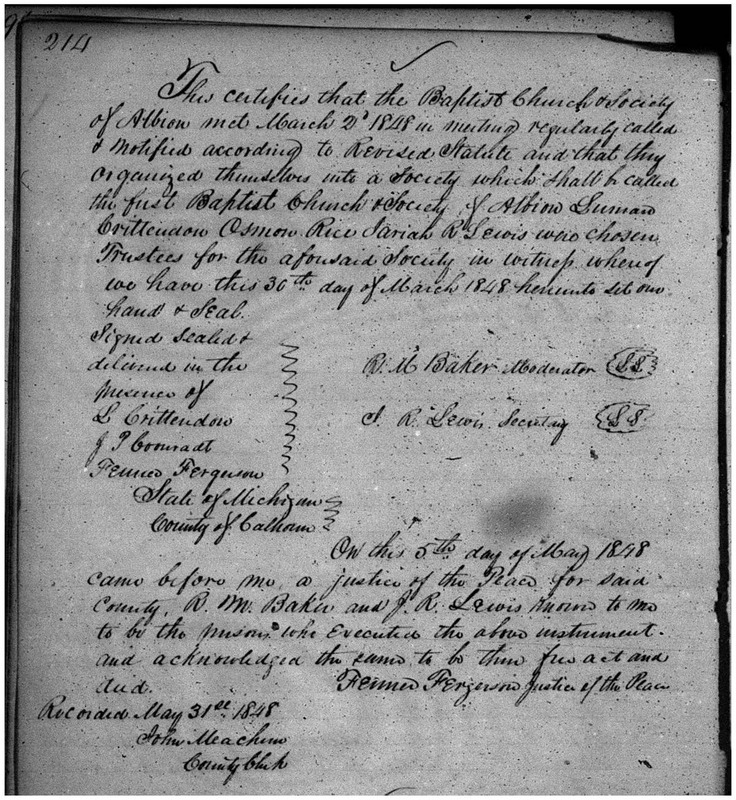 214
This certifies that the Baptist Church & Society
of Albion met March 2d 1848 in meeting regularly called
& notified according to Revised Statute and that they
organized themselves into a Society which shall be called
the first Baptist Church & Society of Albion Luman
Crittendon Osmon Rice Jariah R Lewis were chosen
Trustees for the aforesaid Society in witness whereof
we have this 30th day of March 1848 hereunto set our
hand & Seal.
Signed Sealed &
delivered in the
presence of
L Crittendon
J P
Fenner Ferguson
R. M Baker Moderator LS
J. R. Lewis Secretary LS
State of Michigan
County of Calhoun
On this 5th day of May 1848
came before me, a justice of the Peace for said
County, R. M. Baker and J. R. Lewis known to me
to be the persons who Executed the above instrument.
and acknowledged the same to be their free act and
deed.
Fenner Fergerson Justice of the Peace
Recorded May 31st 1848
John Meachem
County Clerk